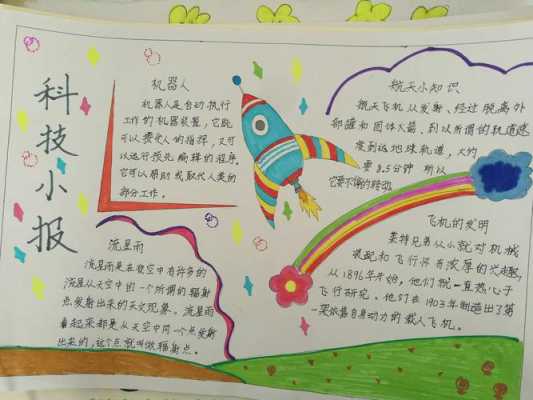 科技小报
机器人
机器人是自动执行
工作的机器装置，它既
可以接受人的指挥，又可
以运行预先编辑的程序。
它可以帮助或取代人类的
部分工作。
流星雨
流星雨是在夜空中有许多的
流星从天空中的一个所谓的辐射
点发射出来的天文现象。流星雨
看起来都是从天空中同一个点发射
出来的，这个点就叫做辐射点。
航天小知识
航天飞机从发射、经过脱离外
部罐和固体火箭、到以所谓的轨道速
度到达地球轨道，大约
要8.5分钟 所以
它要不停的转动
飞机的发明
莱特兄弟从小就对机械
装配和飞行怀有浓厚的兴趣，
从1896年开始，他们就一直热心于
飞行研究。他们在1903年制造出了第
一架依靠自身动力的载人飞机。